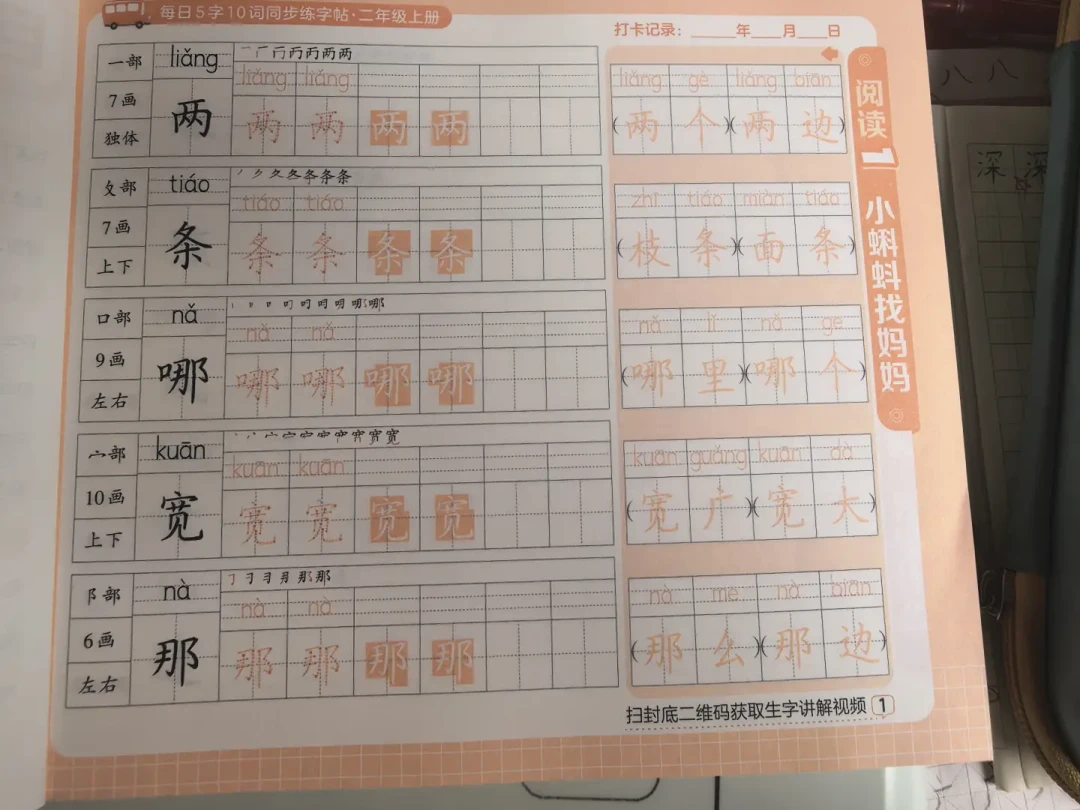 每日5字10词同步练字帖·二年级上册
打卡记录：______年____月____日
阅读1 小蝌蚪找妈妈
一部 liǎng
7画 两
独体
liǎng liǎng
两 两 两 两
liǎng gè liǎng biān
(两个)(两边)
夂部 tiáo
7画 条
上下
tiáo tiáo
条 条 条 条
zhī tiáo miàn tiáo
(枝条)(面条)
口部 nǎ
9画 哪
左右
nǎ nǎ
哪 哪 哪 哪
nǎ lǐ nǎ ge
(哪里)(哪个)
宀部 kuān
10画 宽
上下
kuān kuān
宽 宽 宽 宽
kuān guǎng kuān dà
(宽广)(宽大)
阝部 nà
6画 那
左右
nà nà
那 那 那 那
nà me nà biān
(那么)(那边)
扫封底二维码获取生字讲解视频 1
八 八
深 深